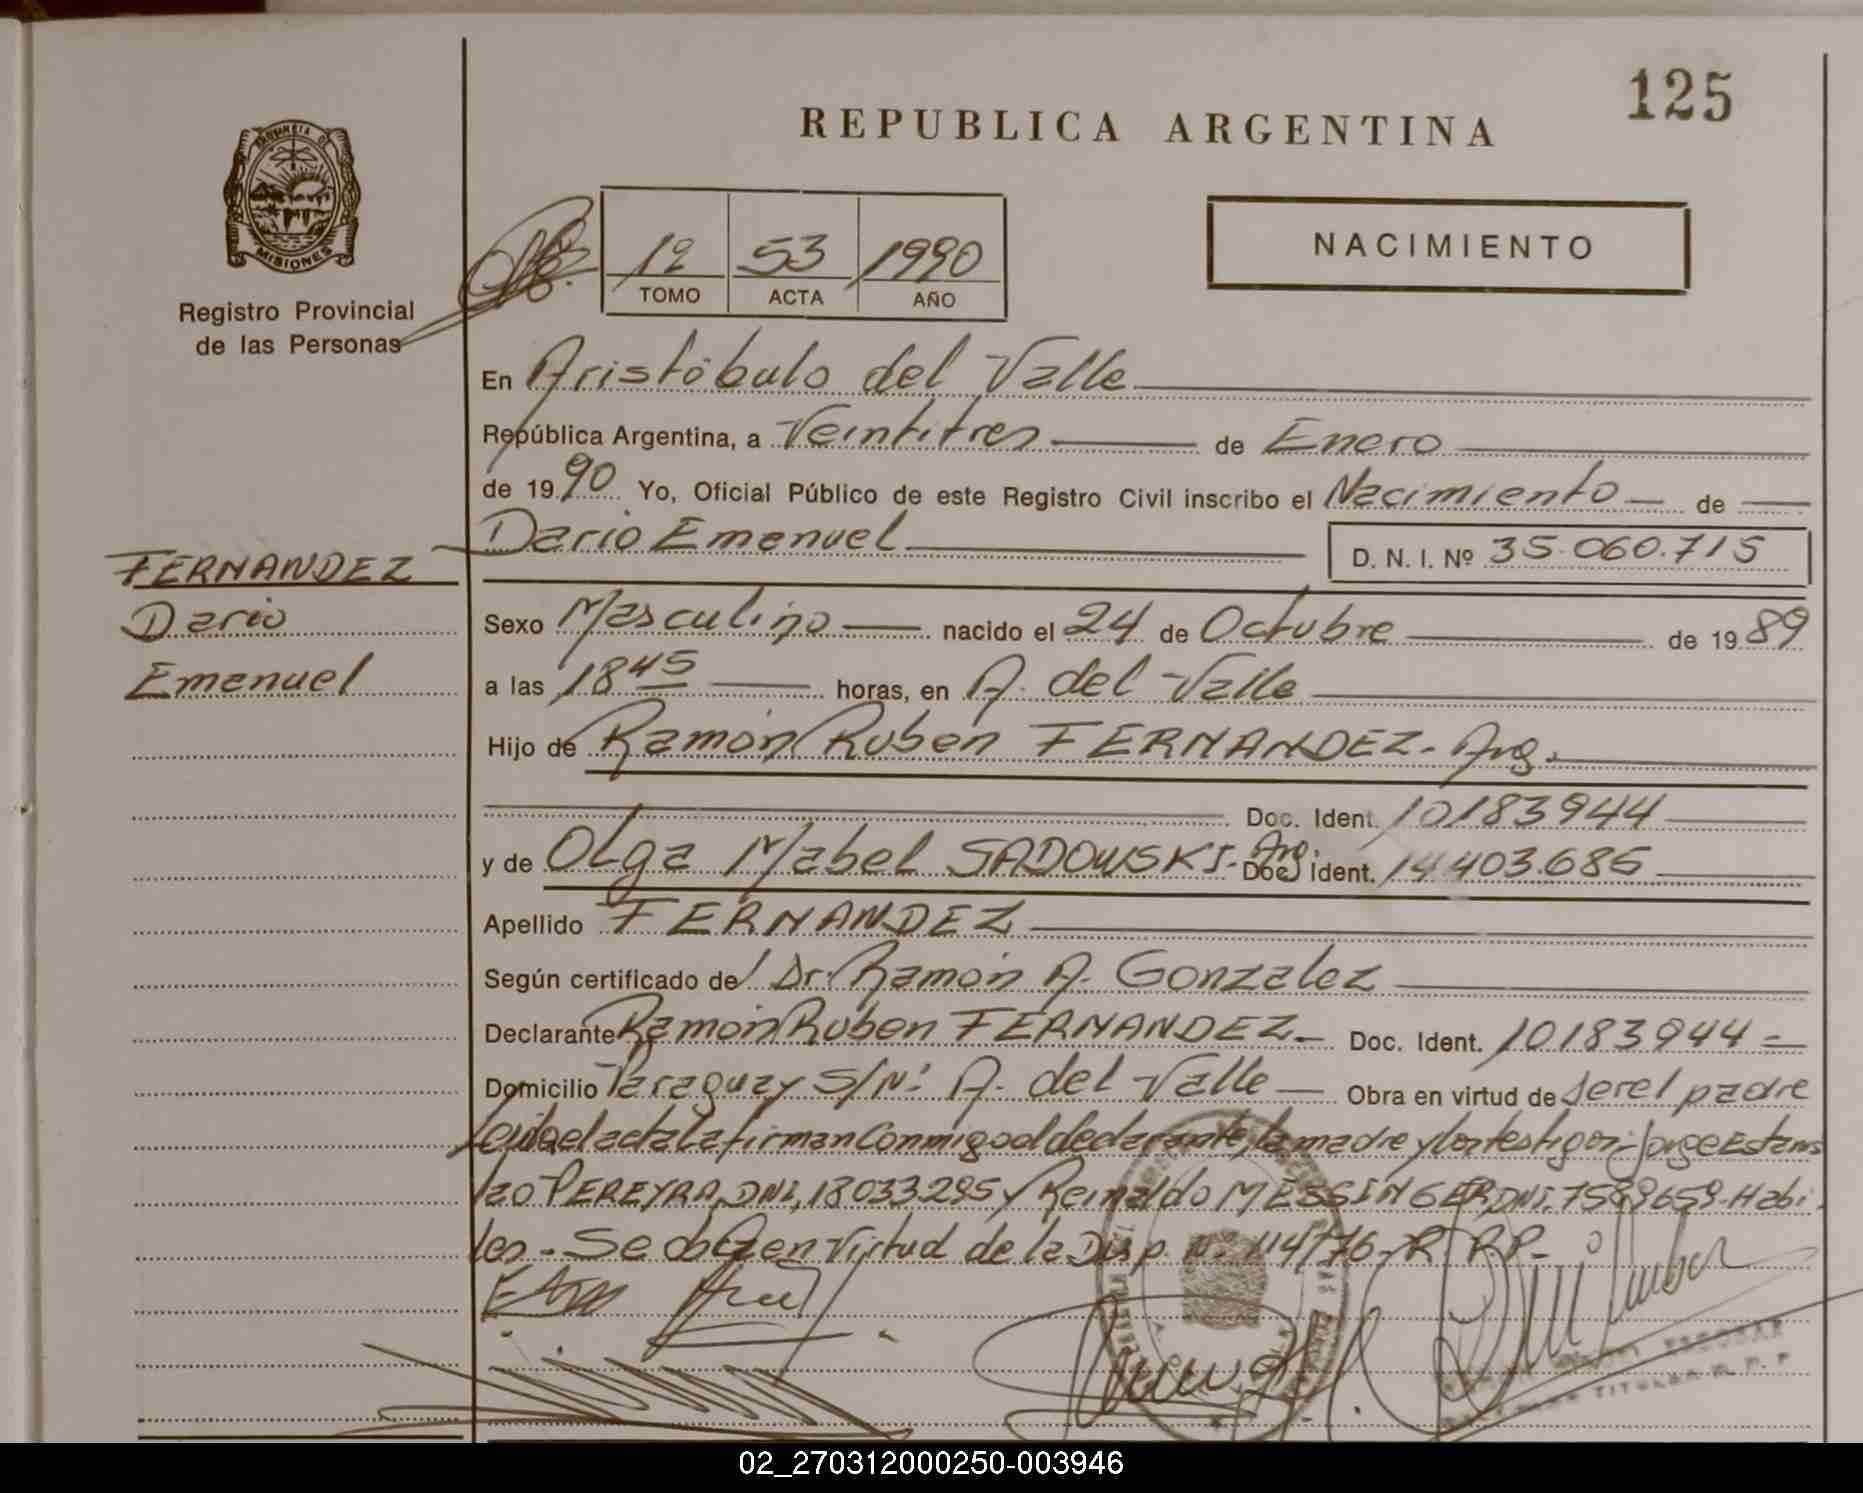 125
REPUBLICA ARGENTINA
PROVINCIA DE
MISIONES
Registro Provincial
de las Personas
1º 53 1990
TOMO ACTA AÑO
NACIMIENTO
En Aristóbulo del Valle
República Argentina, a Veintitres de Enero
de 1990 Yo, Oficial Público de este Registro Civil inscribo el Nacimiento de
Dario Emanuel D. N. I. Nº 35.060.715
FERNANDEZ
Dario
Emanuel
Sexo Masculino nacido el 24 de Octubre de 1989
a las 18 45 horas, en A. del Valle
Hijo de Ramón Ruben FERNANDEZ- Arg.
Doc. Ident. 10183944
y de Olga Mabel SADOWSKI- Arg. Doc. Ident. 14403.686
Apellido FERNANDEZ
Según certificado de/ Dr. Ramón A. Gonzalez
Declarante Ramón Ruben FERNANDEZ Doc. Ident. 10183944
Domicilio Paraguay S/Nº A. del Valle Obra en virtud de ser el padre
Leida el acta la firman conmigo el declarante, la madre y los testigos:- Jorge Estanis
lao PEREYRA, DNI, 18033295 y Reinaldo MESSINGER, DNI. 7589659. Habi-
les.- Se obra en virtud de la Disp. Nº 114/76-R.RP-
ESCOBAR
TITULAR R. P. P.
02_270312000250-003946